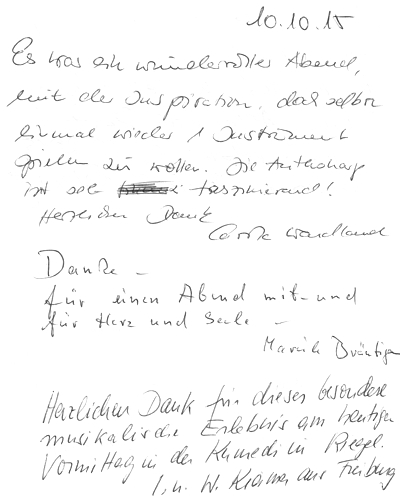 10.10.15
Es war ein wundervoller Abend,
mit der Inspiration, doch selbst
einmal wieder 1 Instrument
spielen zu wollen. Die
ist sehr faszinierend!
Herzlichen Dank

Danke –
für einen Abend mit- und
für Herz und Seele –

Herzlichen Dank für dieses besondere
musikalische Erlebnis am heutigen
Vormittag in der Kumedi in Riegel.
W. Kramer aus Freiburg